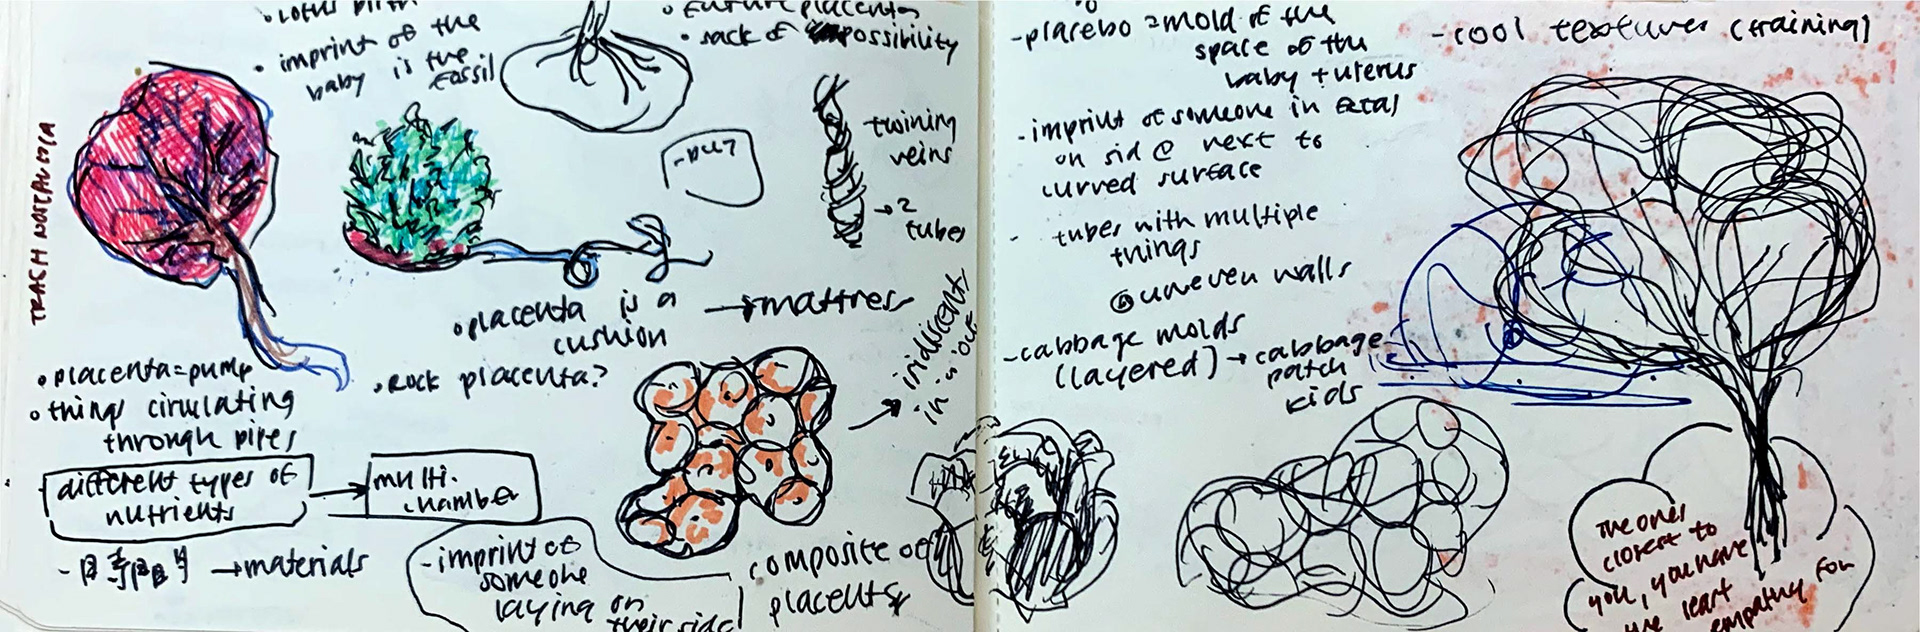 TRASH
imprint of the
baby is the
fossil
future placentas
sack of possibility
twining
veins
→ 2
tubes
placenta is a
cushion
→ mattres
rock placenta?
placenta = pump
things circulating
through pipes
different types of
nutrients
→ multi.
chamber
→ materials
- imprint of
someone
laying on
their side
composite of
placentas
iridiscent
in
- placebo = mold of the
space of the
baby + uterus
- imprint of someone in fetal
on sid @ next to
curved surface
- tubes with multiple
things
@ uneven walls
- cabbage molds
(layered) → cabbage
patch
kids
- cool textures (training)
The ones
closest to
you, you have
the least
empathy for